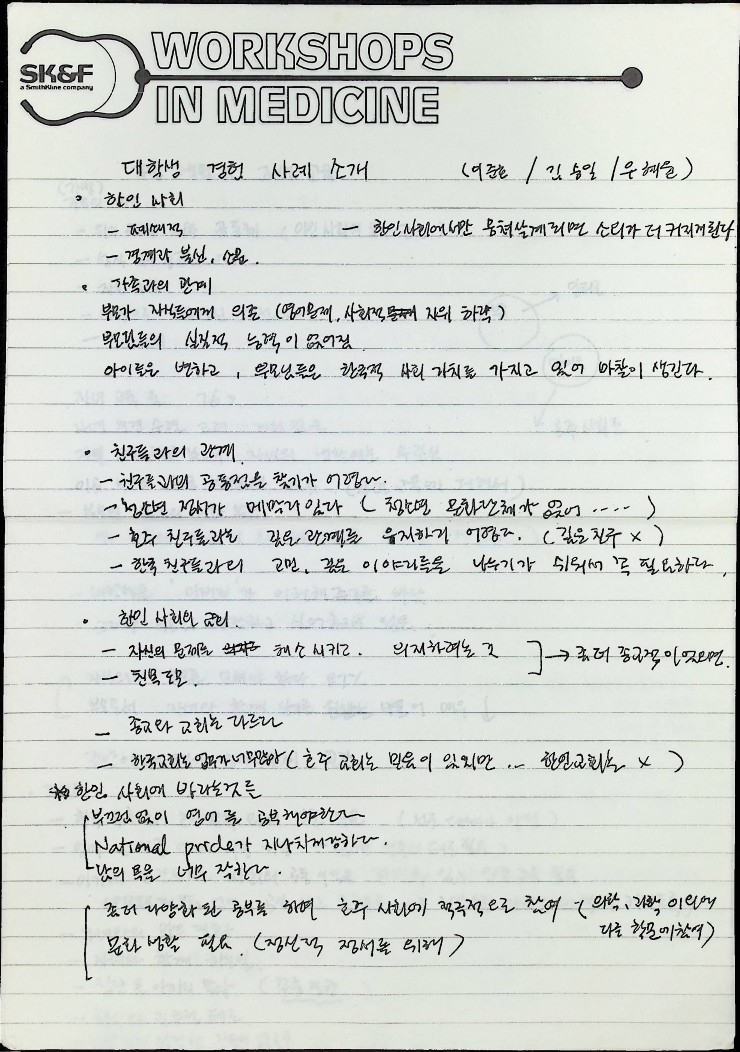 SK&F
a SmithKline company
WORKSHOPS
IN MEDICINE
대학생 경험 사례 소개 (이준호 / 김승일 / 우혜윤)
• 한인 사회
- 폐쇄적 - 한인사회에서만 뭉쳐살게되면 소리가 더 커지게된다
- 경계와 불신, 소문.
• 가족과의 관계
부모가 자식들에게 의존 (영어문제, 사회적 지위 하락)
부모님들의 실질적 능력이 없어짐
아이들은 변하고, 부모님들은 한국적 사회 가치를 가지고 있어 마찰이 생긴다.
• 친구들과의 관계
- 친구들과의 공통점을 찾기가 어렵다.
- 정서가 메말라있다 ( 문화단체가 없어 ····)
- 호주 친구들과는 깊은 관계를 유지하기 어렵다. (깊은친구 ×)
- 한국 친구들과의 고민, 깊은 이야기들을 나누기가 쉬워서 꼭 필요하다.
• 한인 사회의 교회
- 자신의 문제를 해소시키고. 의지하려는 곳 ] → 좀더 종교적이었으면.
- 친목도모.
- 종교와 교회는 다르다
- 한국교회는 업무가 너무많아 (호주 교회는 믿음이 있지만 ... 한인교회는 ×)
* 한인 사회에 바라는것들
부끄럼 없이 영어를 공부해야한다
National pride가 지나치게강하다.
남의 욕을 너무 잘한다.
좀더 다양화 된 공부를 하며 호주 사회에 적극적으로 참여 (의학, 과학 이외에
다른 학문에참여)
문화 생활 필요. (정신적 정서를 위해)